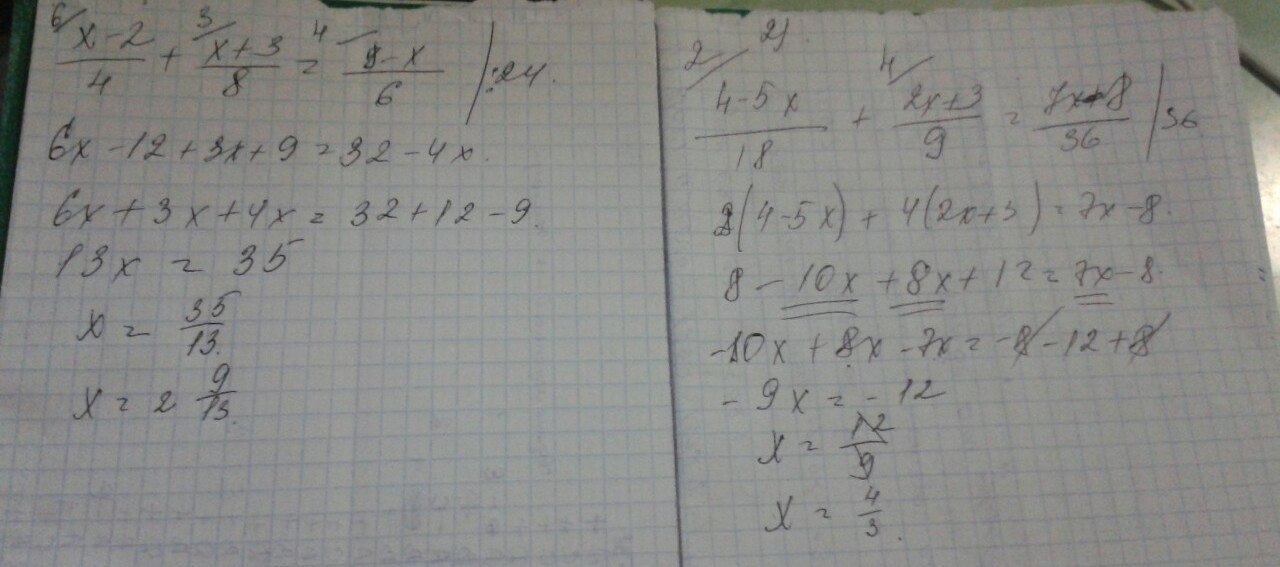 6/ x-2/4 + 3/ x+3/8 = 4/ 8-x/6 | :24.
6x - 12 + 3x + 9 = 32 - 4x.
6x + 3x + 4x = 32 + 12 - 9.
13x = 35
x = 35/13.
x = 2 9/13.
2)
2/ 4-5x/18 + 4/ 2x+3/9 = 7x-8/36 | 36
2(4-5x) + 4(2x+3) = 7x-8.
8 - 10x + 8x + 12 = 7x - 8.
-10x + 8x - 7x = -8 - 12 + 8
-9x = -12
x = 12/9
x = 4/3.